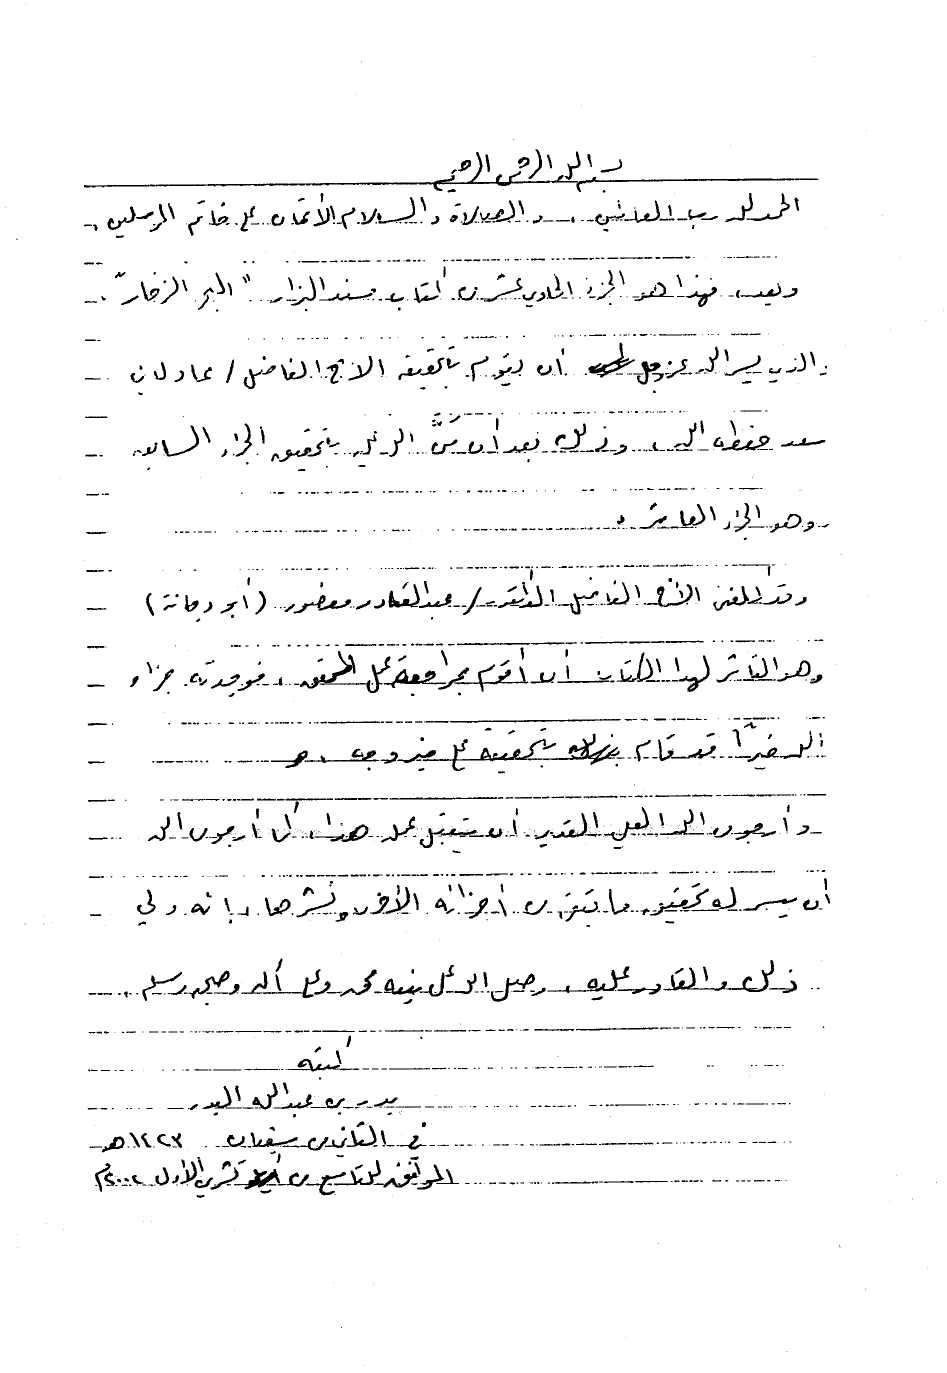 بسم الله الرحمن الرحيم
الحمد لله رب العالمين ، والصلاة والسلام الأتمان على خاتم المرسلين ،
وبعد ، فهذا هو الجزء الحادي عشر من كتاب مسند البزار " البحر الزخار " ،
والذي يسر الله عز وجل أن يقوم بتحقيقه الأخ الفاضل / عادل بن
سعد حفظه الله ، وذلك بعد أن مَنَّ الله علي بتحقيق الجزء السابق
وهو الجزء العاشر .
وقد كلفني الأخ الفاضل الدكتور / عبدالقادر منصور ( أبو دجانة )
وهو الناشر لهذا الكتاب أن أقوم بمراجعة عمل المحقق ، فوجدته جزاه
الله خيرًا قد قام بتحقيقه على خير وجه .
وأرجو من الله العلي القدير أن يتقبل عمله هذا ، كما أرجو من الله
أن ييسر له تحقيق ما تبقى من أجزائه الأخرى ونشرها ، إنه ولي
ذلك والقادر عليه ، وصلى الله على نبيه محمد وعلى آله وصحبه وسلم .
كتبه
بدر بن عبدالله البدر
في الثاني من شعبان ١٤٢٣ هـ
الموافق للتاسع من تشرين الأول ٢٠٠٢ م